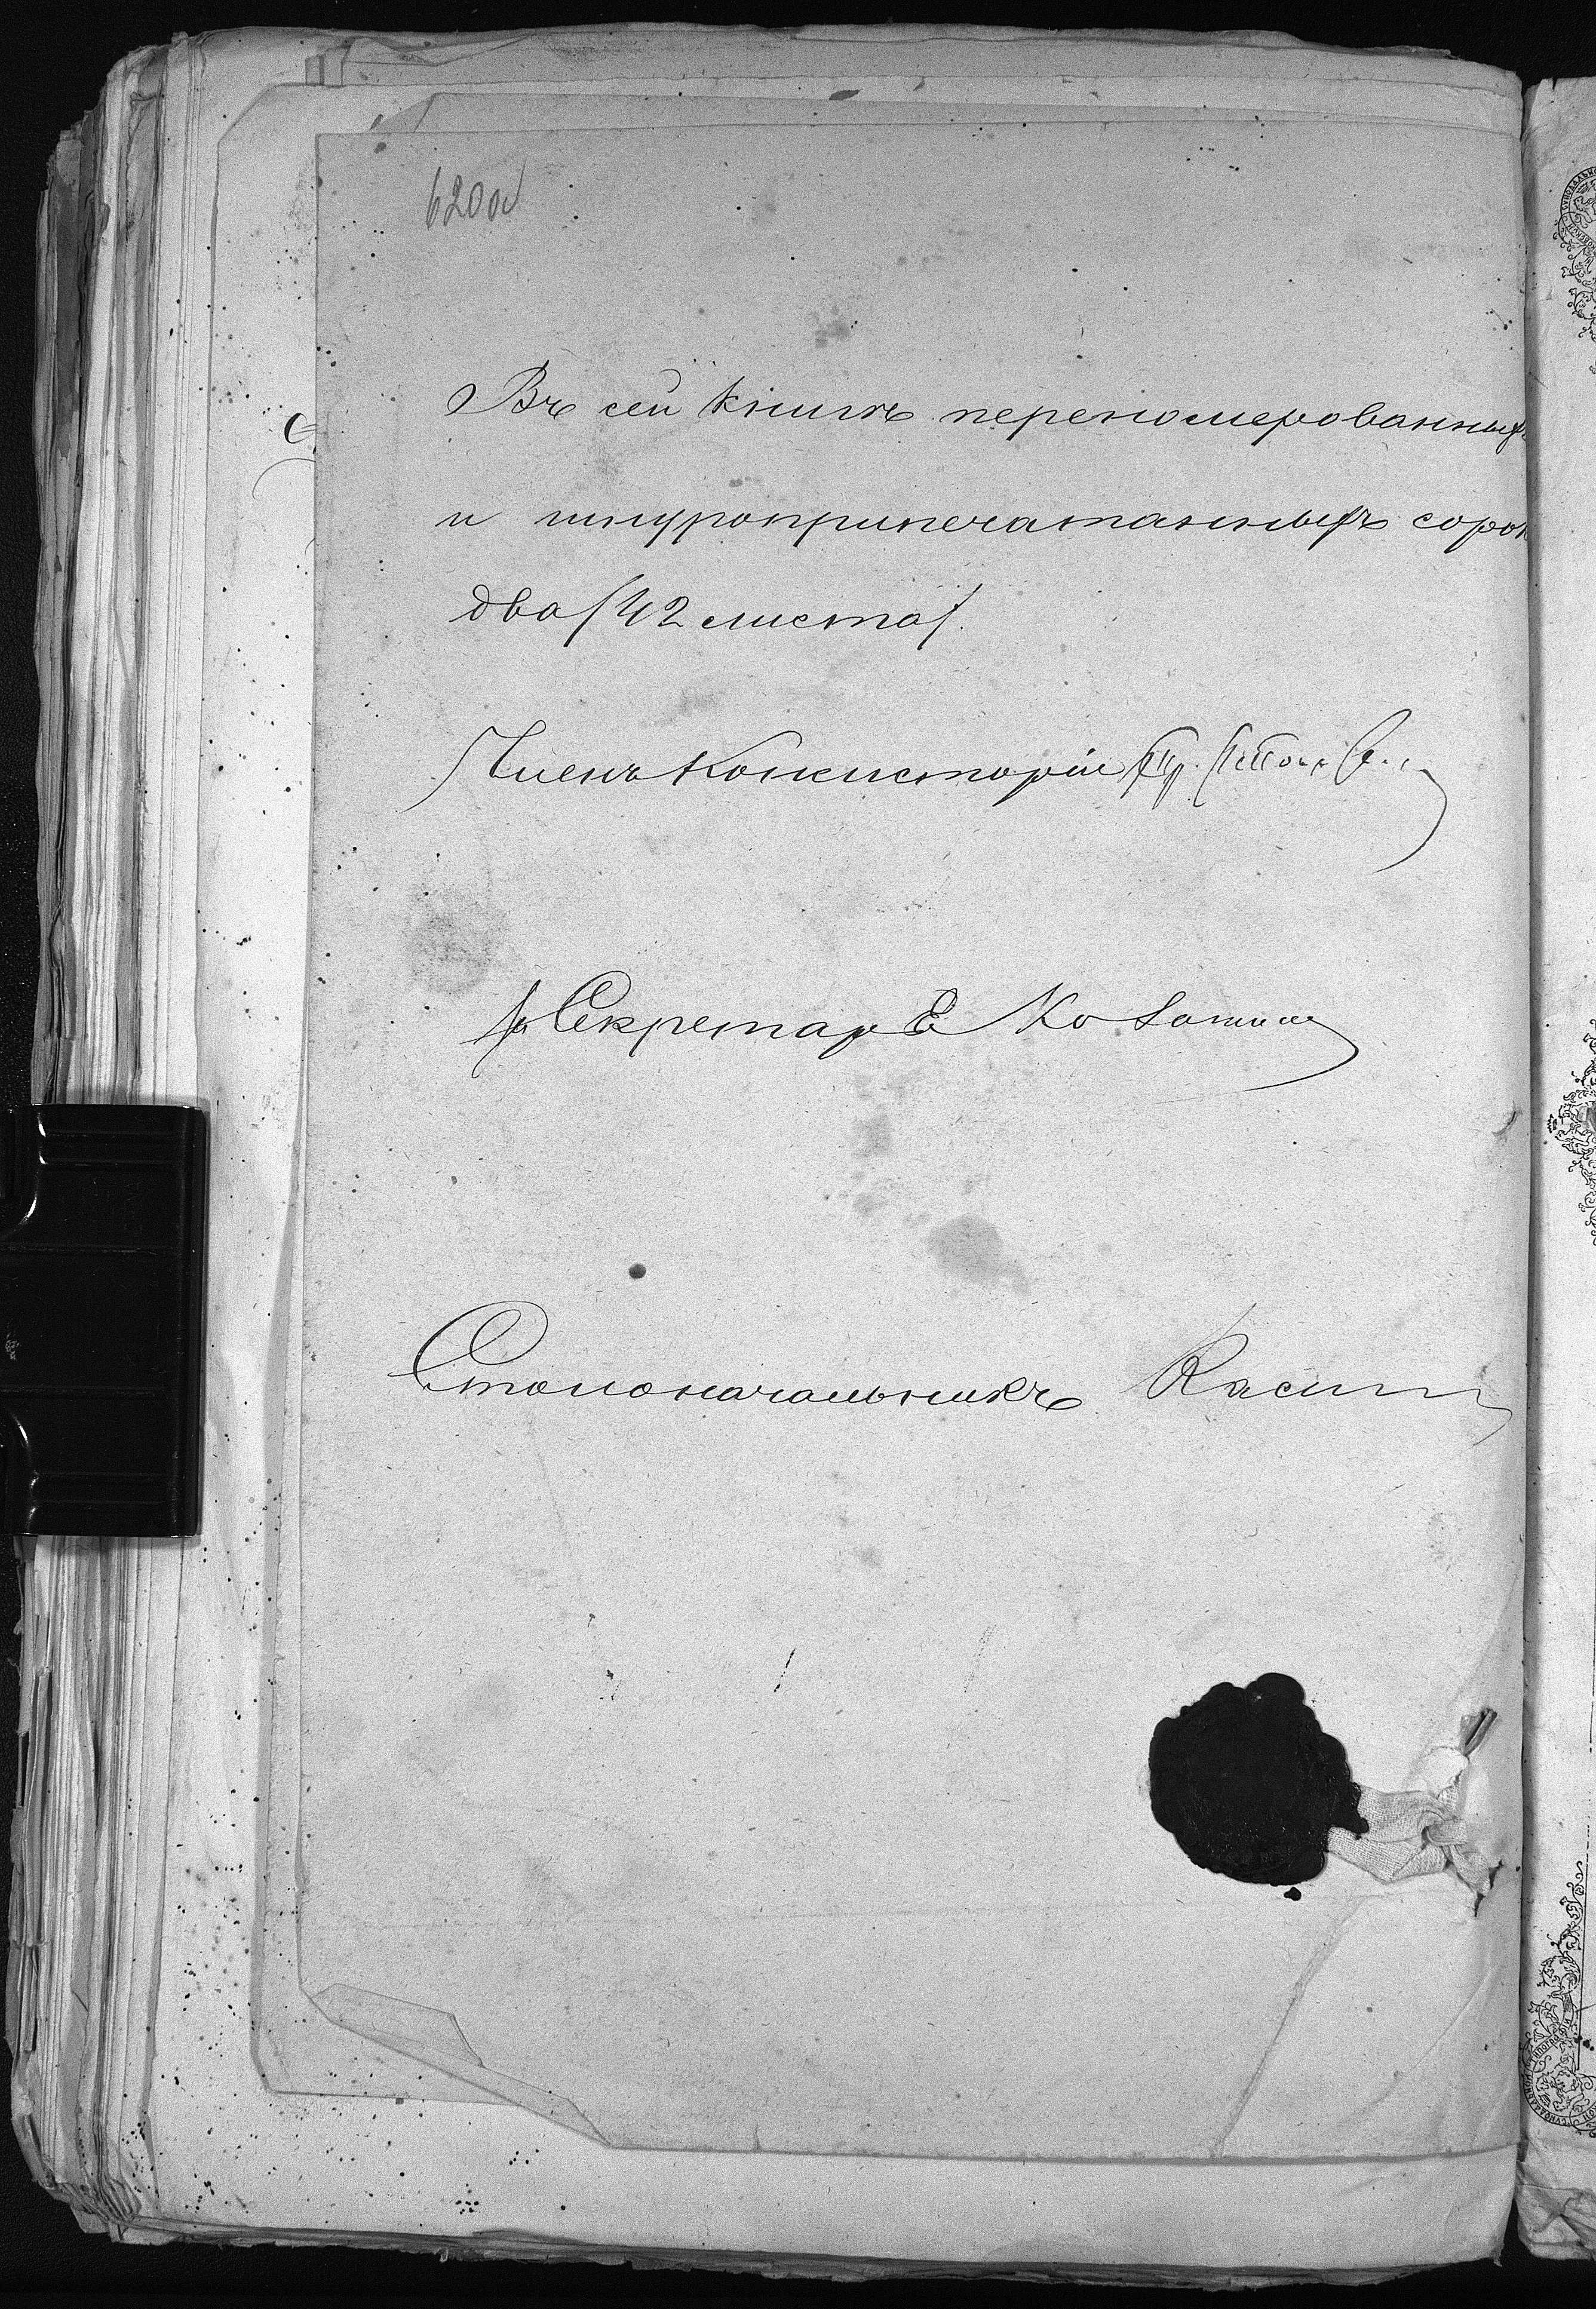 620об
Въ сей книгѣ переномерованныхъ
и шнуропричатанныхъ сорок
два /42 листа/.
Членъ Консисторіи
Секретарь
Столоначальникъ